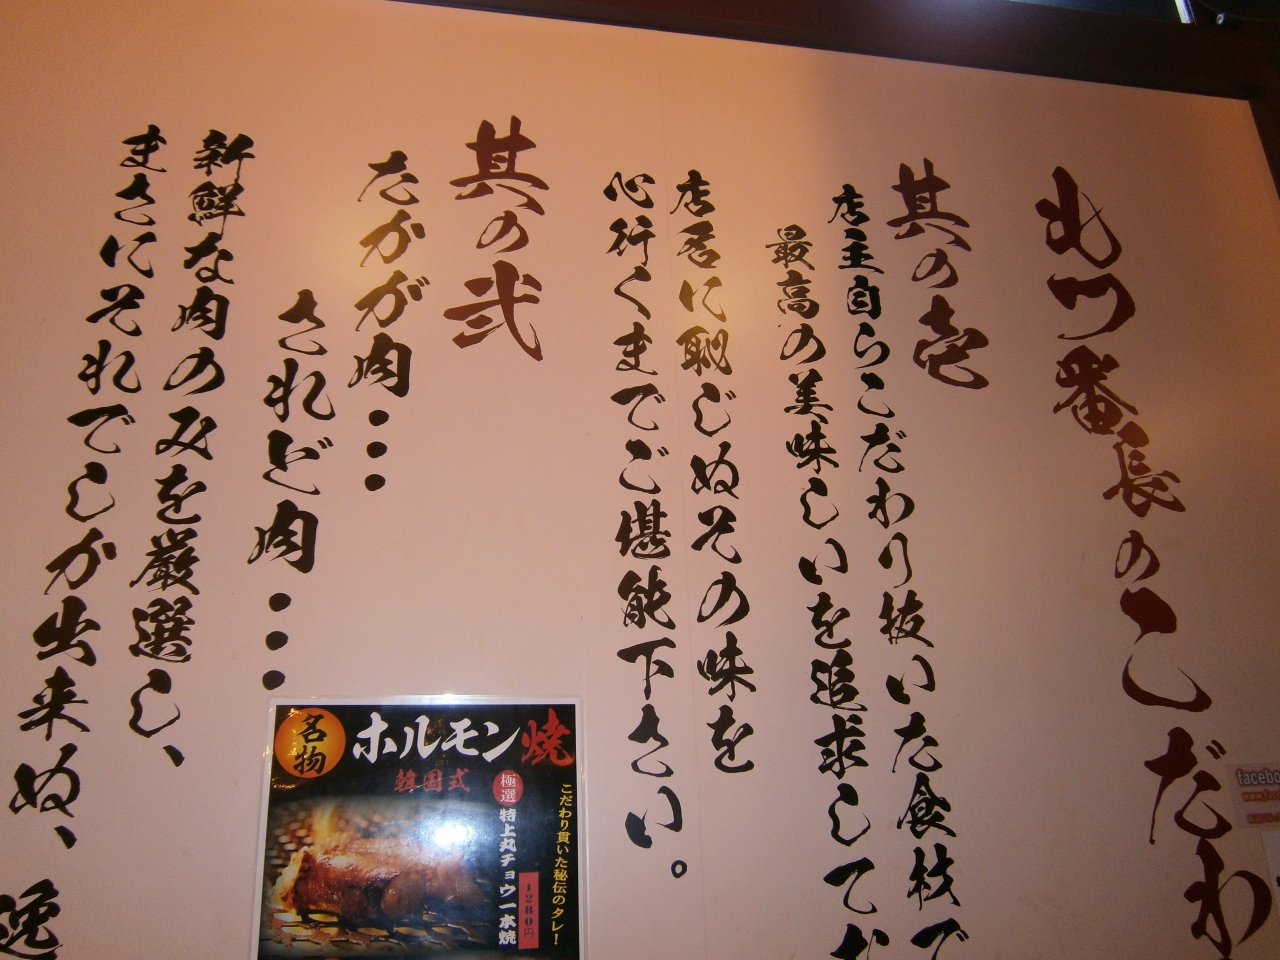 もつ番長のこだわ
其の壱
店主自らこだわり抜いた食材で
最高の美味しいを追求してな
店名に恥じぬその味を
心行くまでご堪能下さい。
其の弐
たかが肉…
されど肉…
新鮮な肉のみを厳選し、
まさにそれでしか出来ぬ、逸
名物
ホルモン焼
韓国式
極選
特上丸チョウ一本焼
1280円
こだわり貫いた秘伝のタレ!
facebo